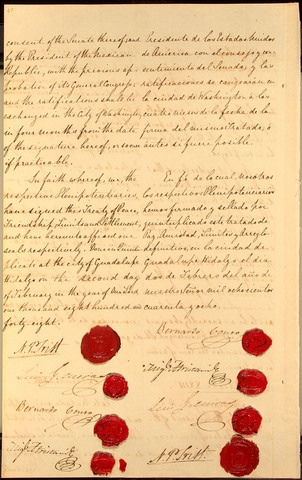 consent of the Senate thereof; and
by the President of the Mexican
Republic, with the previous ap-
probation of its General Congress;
and the ratifications shall be
exchanged in the City of Washington,
in four months from the date
of the signature hereof, or sooner
if practicable.
In faith whereof, we, the
respective Plenipotentiaries,
have signed this Treaty of Peace,
Friendship, Limits and Settlement,
and have hereunto affixed our
seals respectively. Done in Quintu-
plicate at the City of Guadalupe
Hidalgo on the second day
of February in the year of Our Lord
one thousand eight hundred and
forty eight.
N. P. Trist
Luis G. Cuevas
Bernardo Couto
Migl. Atristain
Presidente de los Estados Unidos
de America con el consejo y con-
sentimiento del Senado; y las
ratificaciones se canjearán en
la ciudad de Washington a los
cuatro meses de la fecha de la
firma del mismo Tratado, ó
antes si fuere posible.
En fé de lo cual, nosotros
los respectivos Plenipotenciarios
hemos firmado y sellado por
quintuplicado este tratado de
Paz, Amistad, Límites y Arreglo
definitivo, en la ciudad de
Guadalupe Hidalgo el dia
dos de Febrero del año de
nuestro Señor mil ochocientos
cuarenta y ocho.
Bernardo Couto
Migl. Atristain
Luis G. Cuevas
N. P. Trist